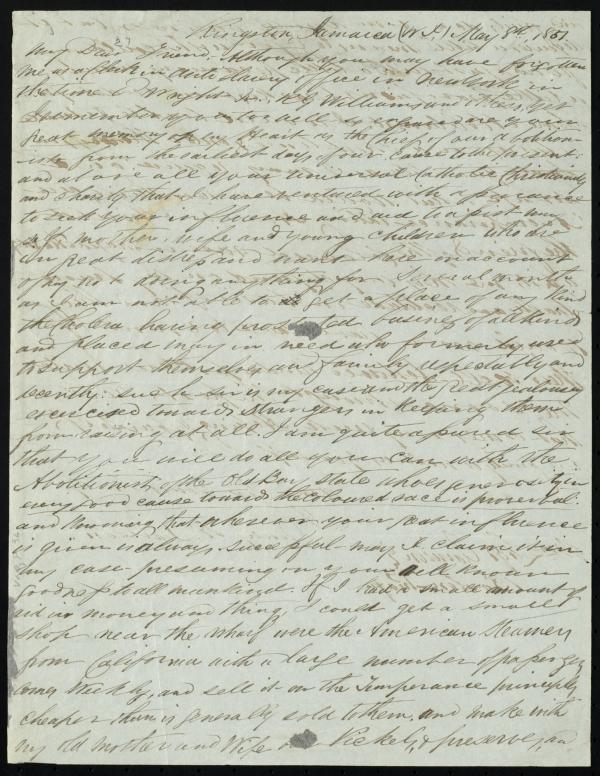 Kingston, Jamaica (W.I.) May 8th 1851
My Dear Friend. Although you may have forgotten
me as a Clerk in Anti Slavery Office in New York in
the time of Wright Jr. RG Williams and others, yet
I remember you too well
great memory of my heart as the Chief of our abolition-
ists from the earliest days of our Cause to the present;
and above all your universal Catholic Christianity
and charity that I have ventured with
to seek your influence and aid to assist my
old mother, wife and young children who are
in great distress and want here on account
of my not doing anything for several months
as I am not able to get a place of any kind
the Cholera having prostrated business of all kinds
and placed many in need who formerly used
to support themselves and family respectably and
decently: such sir is my case and the great jealousy
exercised towards strangers in keeping them
from raising at all. I am quite assured sir
that you will do all you can with the
Abolitionists of the Old Bay State whose generosity in
every good cause toward the coloured race is proverbial:
and knowing that wherever your great influence
is given is always successful - may I claim it in
my case - presuming on your well known
goodness to all mankind. If I had a small amount of
aid in money or any thing, I could get a small
shop near the wharf were the American Steamers
from California with a large number of passengers
comes weekly, and sell it on the Temperance principles
cheaper than is generally sold to them, and make with
my old mother and Wife Pickels, & preserves, an